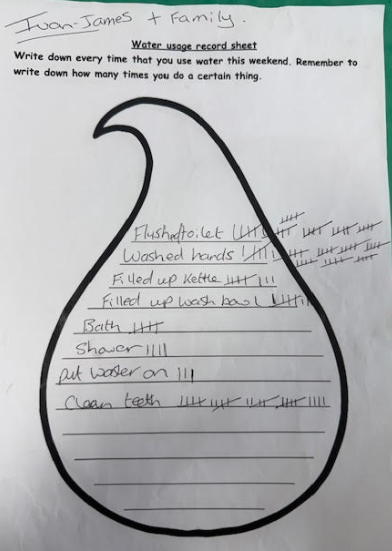 Ivan-James + Family.
Water usage record sheet
Write down every time that you use water this weekend. Remember to
write down how many times you do a certain thing.
Flushed toilet
Washed hands
Filled up Kettle 𝍸 III
Filled up wash bowl
Bath 𝍸
Shower IIII
put washer on III
Clean teeth 𝍸 𝍸 𝍸 𝍸 IIII